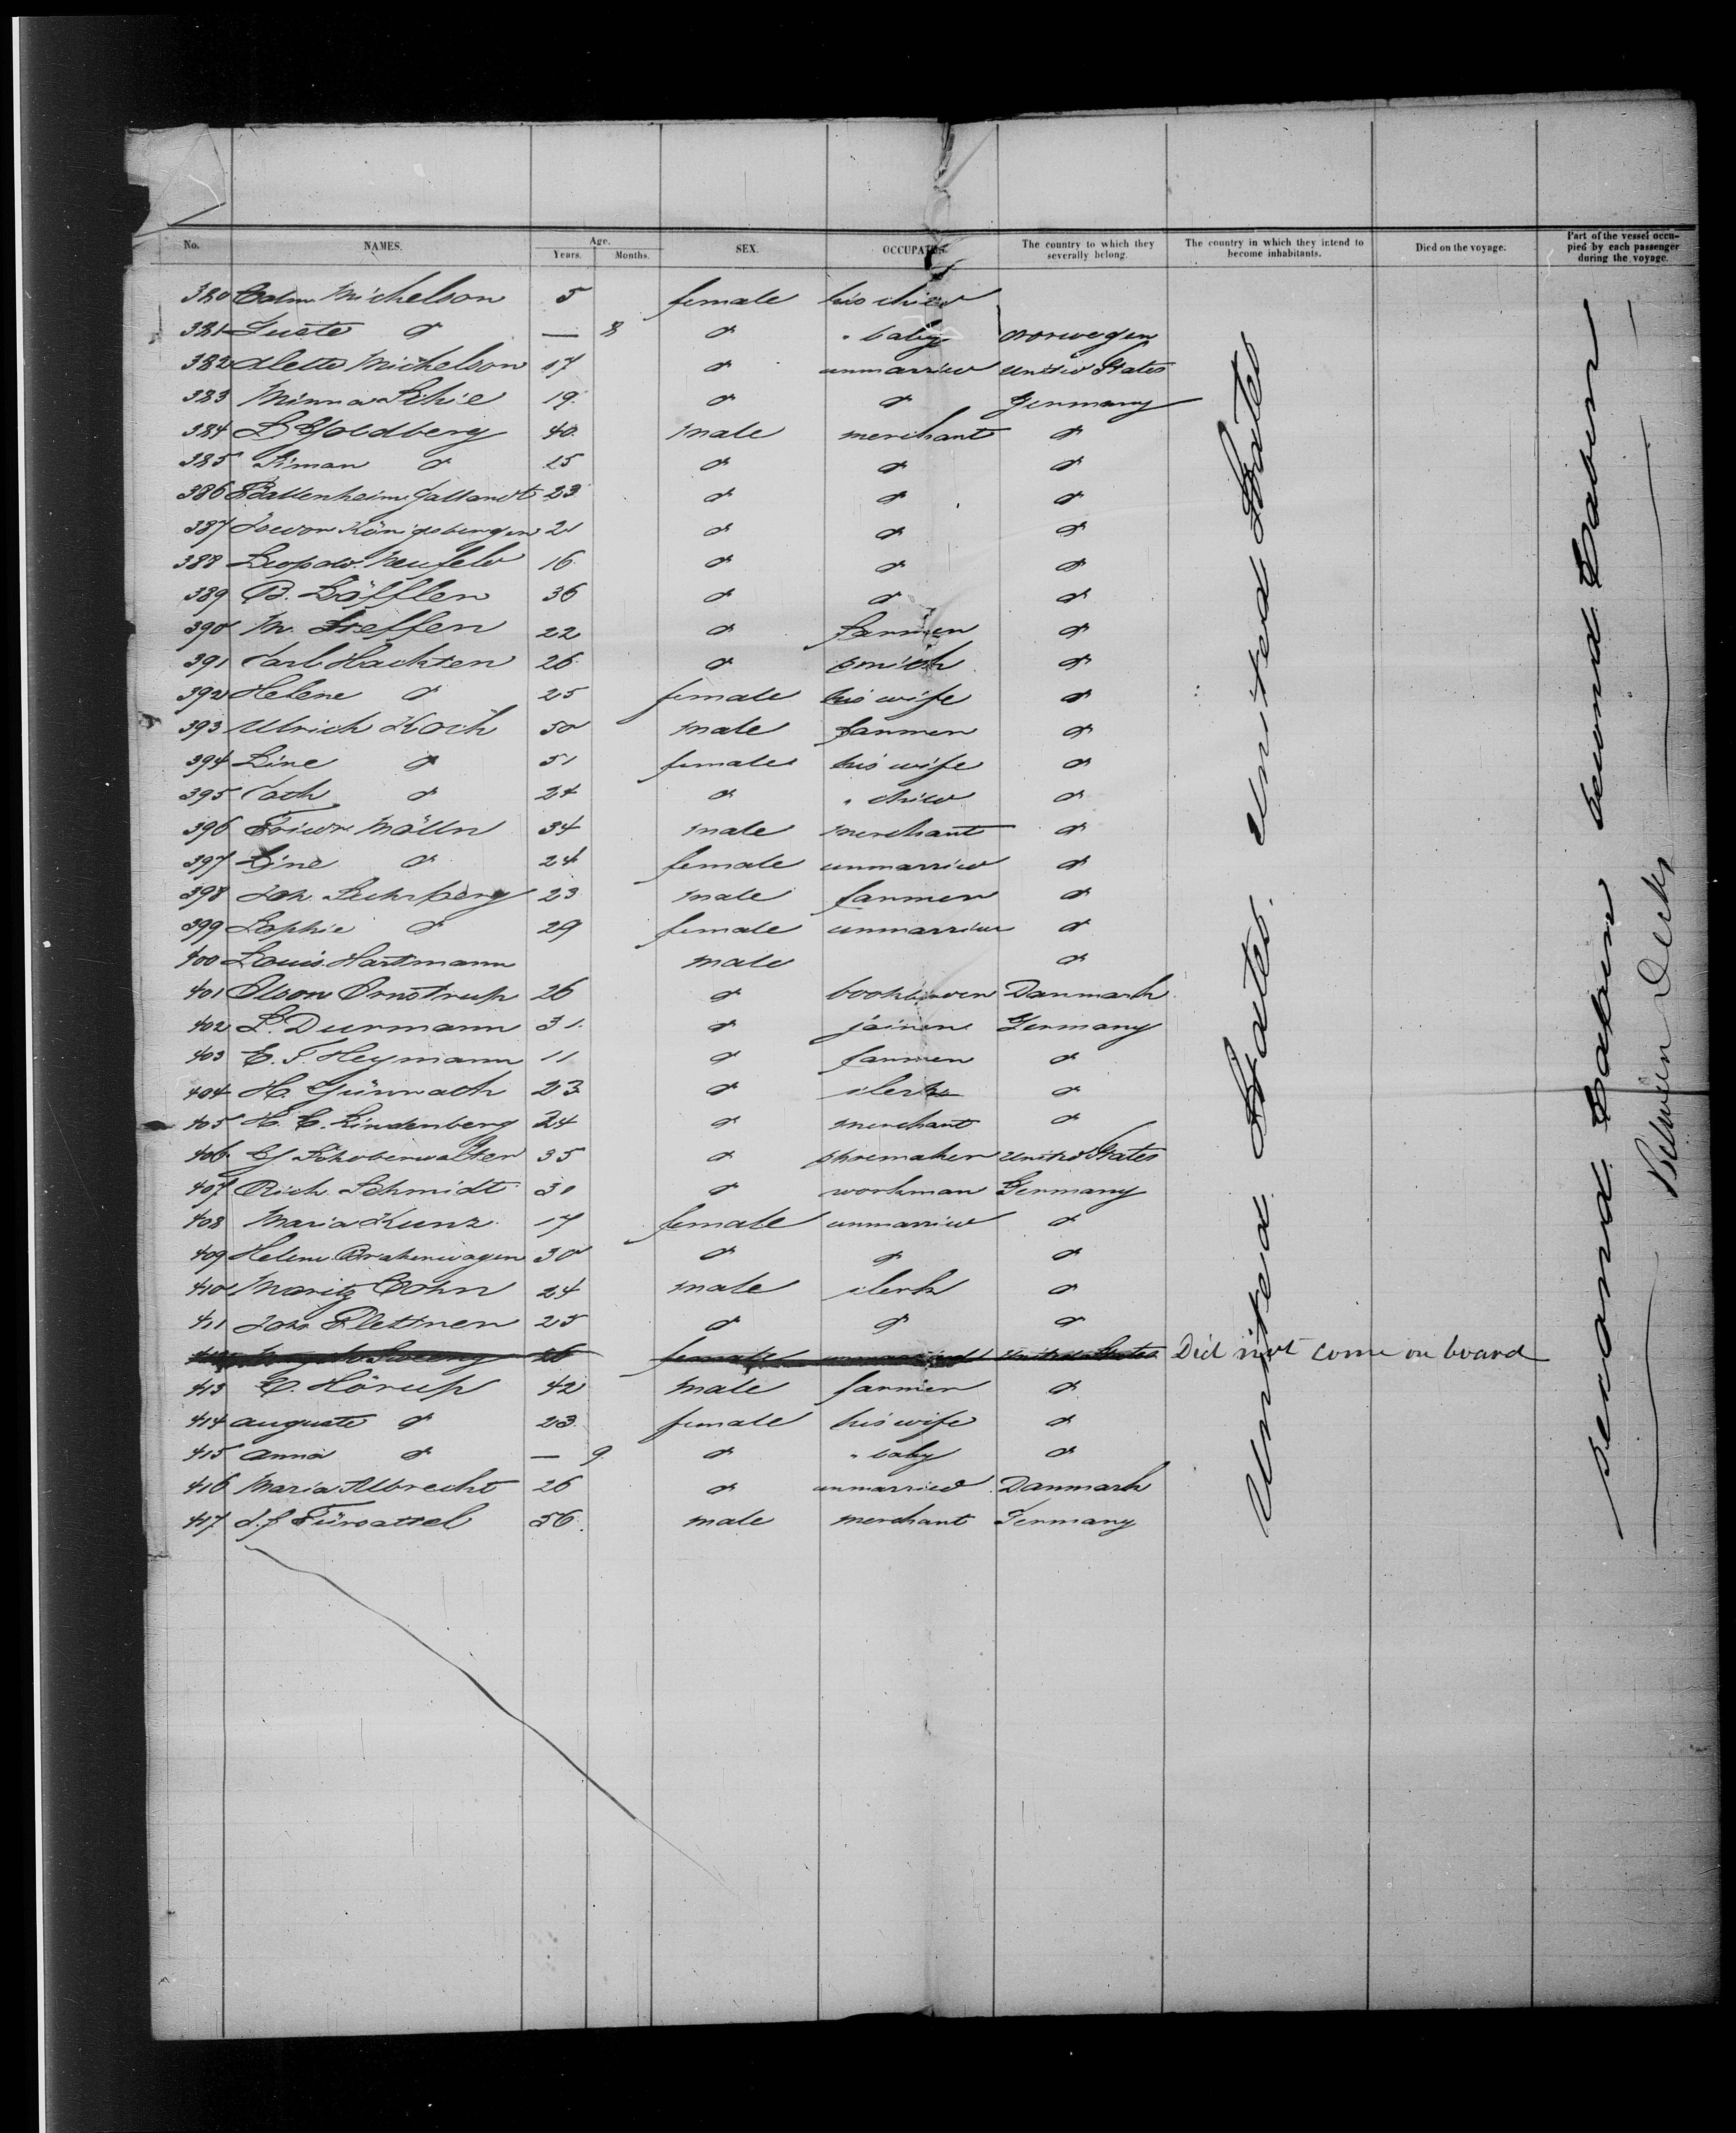 No. NAMES. Age. Years. Months. SEX. OCCUPATION. The country to which they severally belong. The country in which they intend to become inhabitants. Died on the voyage. Part of the vessel occupied by each passenger during the voyage.
380 Michelson 5 female his child
381 d° — 8 d° " baby Norwegen
382 Alette Michelson 17 d° unmarried United States
383 Minna 19 d° d° Germany
384 Goldberg 40 male merchant d°
385 Siman d° 25 d° d° d°
386 23 d° d° d°
387 Königsberger 21 d° d° d°
388 Leopold Neufeld 16 d° d° d°
389 B. Löffler 36 d° d° d°
390 M. Steffen 22 d° farmer d°
391 Carl Hachten 26 d° smith d°
392 Helene d° 25 female his wife d°
393 Ulrich Koch 50 male farmer d°
394 Line d° 51 female his wife d°
395 Cath d° 24 d° " child d°
396 Friedr Mölln 34 male merchant d°
397 Line d° 24 female unmarried d°
398 Joh. 23 male farmer d°
399 Sophie d° 29 female unmarried d°
400 Louis Hartmann male d°
401 Olson Ornstrup 26 d° bookbinder Danmark
402 L. Durmann 31 d° joiner Germany
403 E. F. Heymann 11 d° farmer d°
404 H. Günrath 23 d° clerk d°
405 H. C. Lindenberg 24 d° merchant d°
406 G Schoberwalter 35 d° shoemaker United States
407 Rich. Schmidt 30 d° workman Germany
408 Maria Kunz 17 female unmarried d°
409 Helene Brakenwagen 30 d° d° d°
410 Moritz Cohn 24 male clerk d°
411 Jos Plettner 25 d° d° d°
412 Sweeny 26 female unmarried United States Did not come on board
413 C. Hörup 42 male farmer d°
414 Auguste d° 23 female his wife d°
415 Anna d° — 9 d° " baby d°
416 Maria Albrecht 26 d° unmarried Danmark
417 56 male merchant Germany
United States. United States
second Cabin second Cabin
Between Deck